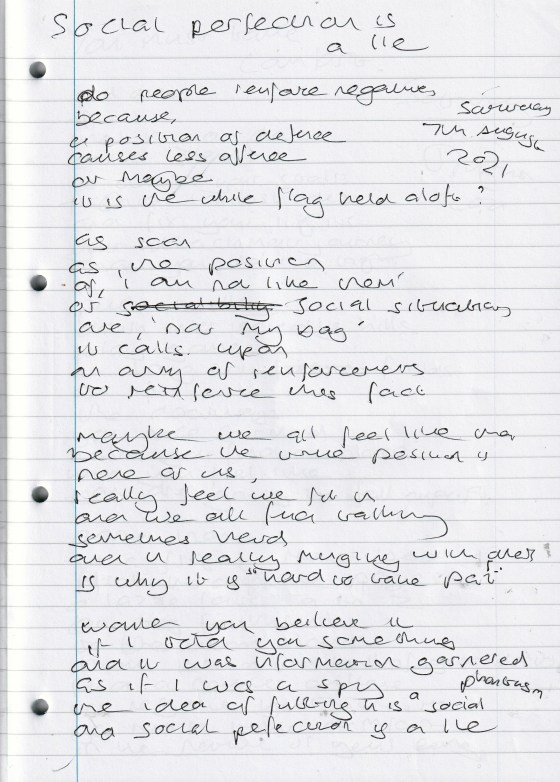 Social perfection is
a lie
Saturday
7th August
2021
do people reinforce negatives
because,
a position of defence
causes less offence
or maybe
it is the white flag held aloft?
as soon
as, the position
of, 'i am not like them'
or social situations
are, 'not my bag'
it calls upon
an army of reinforcements
to reinforce this fact
maybe we all feel like that
because the true position is
none of us,
really feel we fit in
and we all find talking
sometimes hard
and in reality mingling with others
is why it is "hard to take part"
would you believe it
if i told you something
and it was information garnered
as if I was a spy
the idea of fitting in is a social phantasm
and social perfection is a lie